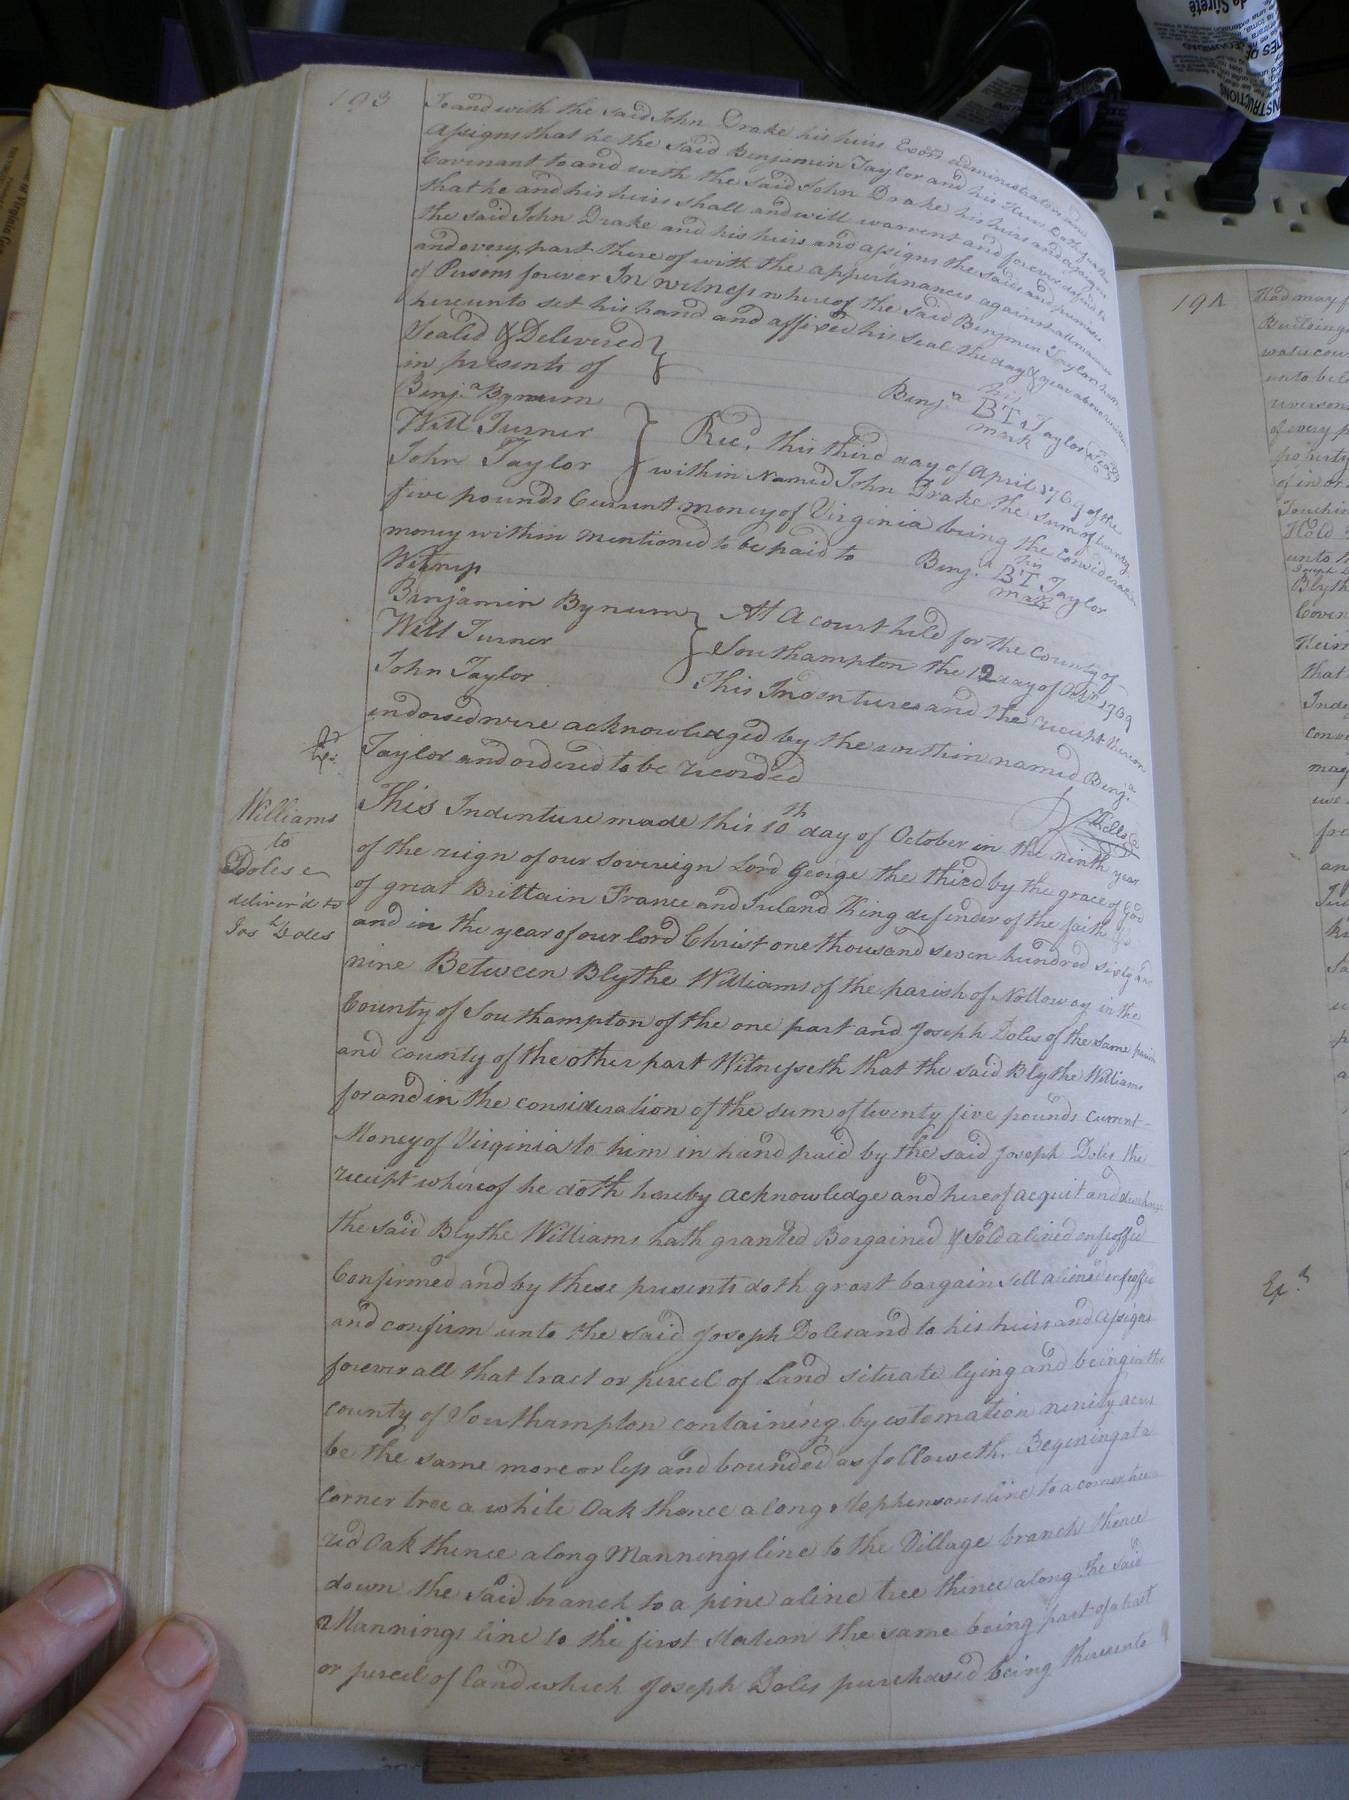 193
To and with the said John Drake his heirs Exors administrators and
assigns that he the said Benjamin Taylor and his Heirs Doth
Covenant to and with the said John Drake his heirs and assigns
that he and his heirs shall and will warrent and forever defend to
the said John Drake and his heirs and assigns the said and premises
and every part there of with the appertinances against all manner
of Persons forever In witness whereof the said Benjmin Taylor hath
hereunto set his hand and affixed his seal the day & year above written
Sealed & Delivered
in presents of
his
Benj.a BT Taylor Seal
mark
Benj.a Bynum
Will Turner
John Taylor
Rec.d this third day of April 1769 of the
within Named John Drake the sum of twenty
five pounds Current money of Virginia being the Consideration
money within mentioned to be paid to
his
Benj.a BT Taylor
mark
Witness
Benjamin Bynum
Will Turner
John Taylor
At A court held for the County of
Southampton the 12 day of Oct.r 1769
This Indentures and the receipt thereon
indorsed were acknowledged by the within named Benj.a
Taylor and ordered to be recorded
Williams
to
Doles
deliver'd to
Jos.h Doles
This Indenture made this 10th day of October in the ninth year
of the reign of our sovereign Lord George the third by the grace of God
of great Brittain France and Ireland King defender of the faith &c
and in the year of our lord Christ one thousand seven hundred sixty and
nine Between Blythe Williams of the parish of Nottoway in the
County of Southampton of the one part and Joseph Doles of the same parish
and county of the other part Witnesseth that the said Blythe Williams
for and in the consideration of the sum of twenty five pounds current
Money of Virginia to him in hand paid by the said Joseph Doles the
receipt whereof he doth hereby acknowledge and hereof acquit and discharge
the said Blythe Williams hath granted Bargained & sold aliened enfeoffed
Confirmed and by these presents doth grant bargain sell aliened enfeoffe
and confirm unto the said Joseph Doles and to his heirs and assigns
forever all that tract or percel of Land situate lying and being in the
county of Southampton containing by estomation ninity acres
be the same more or less and bounded as followeth. Begining at a
corner tree a white Oak thence along Stephensons line to a corner tree a
red Oak thence along Mannings line to the Village branch thence
down the said branch to a pine aline tree thence along the said
Mannings line to the first station the same being part of a tract
or percel of land which Joseph Doles purchased being thereunto
194
Had may
Building
water cou
unto bel
of every p
Hold
unto
Blyth
Coven
that
Inde
Ex.d